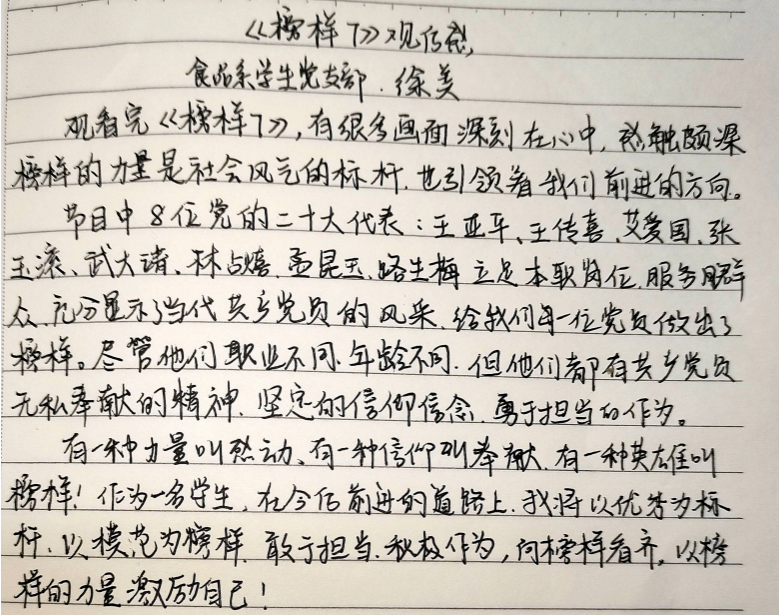 《榜样7》观后感
食品系学生党支部 徐美
观看完《榜样7》,有很多画面深刻在心中,感触颇深
榜样的力量是社会风气的标杆,也引领着我们前进的方向。
节目中8位党的二十大代表:王亚平、王传喜、艾爱国、张
玉滚、武大靖、林占熺、孟昆玉、路生梅立足本职岗位,服务群
众,充分显示了当代共产党员的风采,给我们每一位党员做出了
榜样。尽管他们职业不同,年龄不同,但他们都有共产党员
无私奉献的精神,坚定的信仰信念,勇于担当的作为。
有一种力量叫感动、有一种信仰叫奉献,有一种英雄叫
榜样!作为一名学生,在今后前进的道路上,我将以优秀为标
杆,以模范为榜样,敢于担当,积极作为,向榜样看齐,以榜
样的力量激励自己!